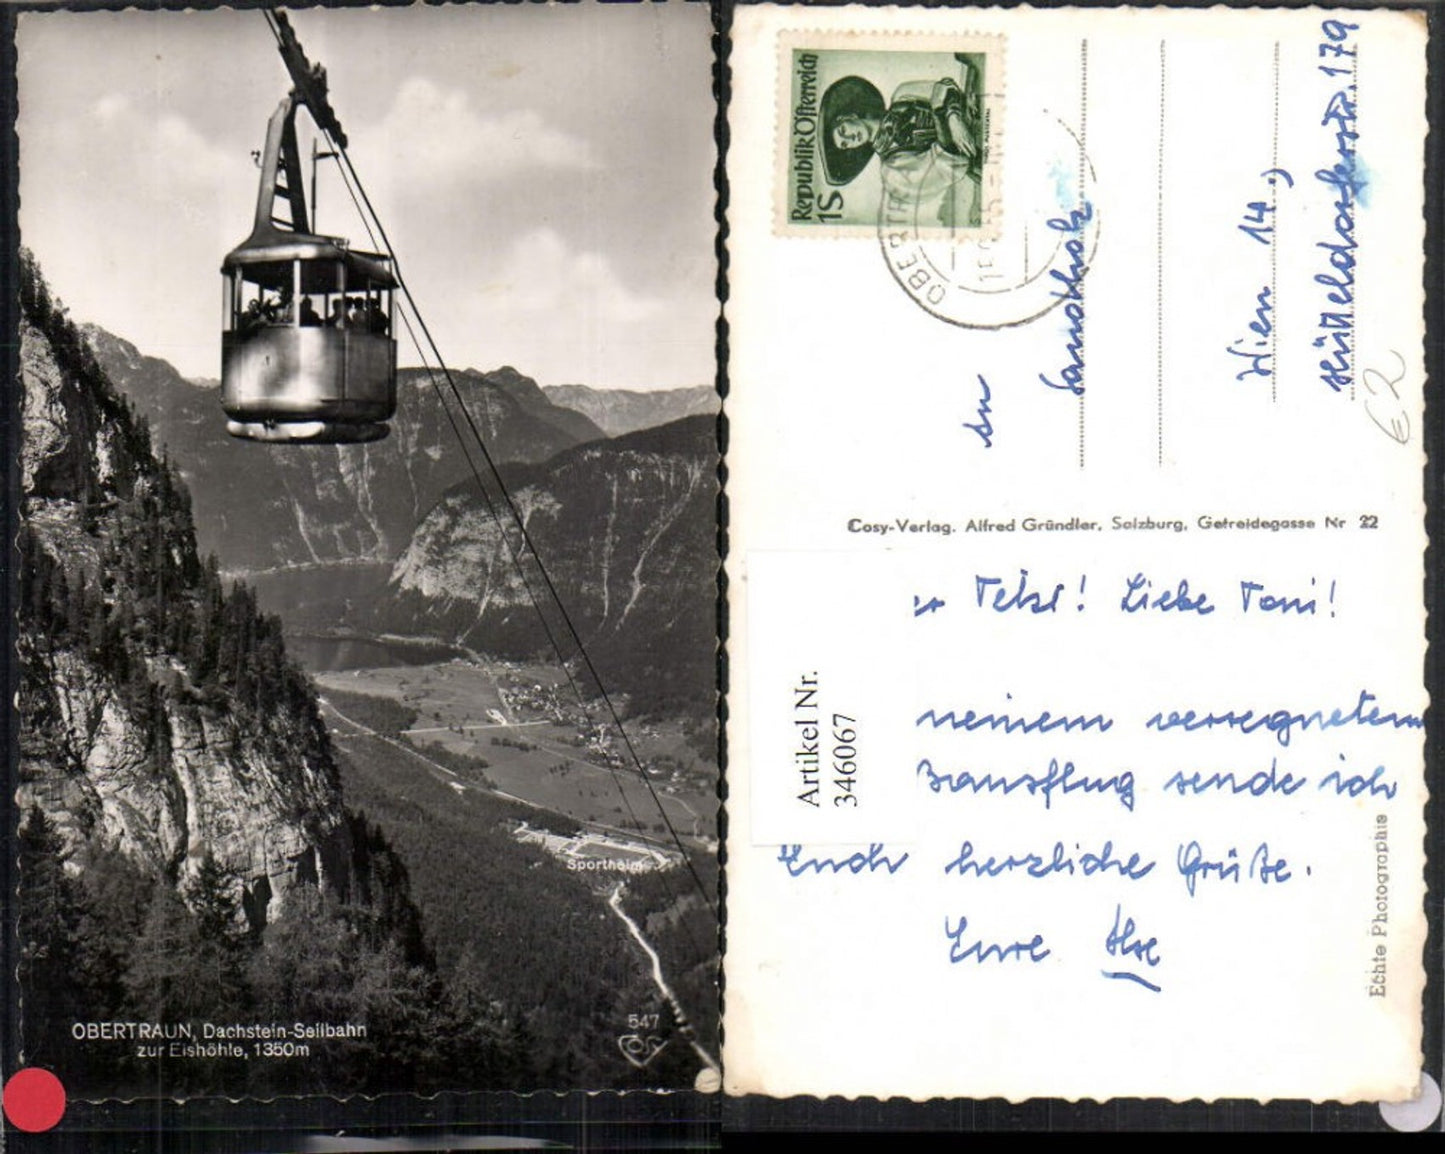 Sportheim
OBERTRAUN, Dachstein-Seilbahn
zur Eishöhle, 1350m
547
Republik Österreich
1S
OBERTRA
An
Wien 14.,
Hütteldorferstr. 179
€2
Cosy-Verlag. Alfred Gründler, Salzburg, Getreidegasse Nr 22
Liebe Toni!
meinem verregneten
sende ich
Euch herzliche Grüße.
Eure Ilse
Artikel Nr.
346067
Echte Photographie